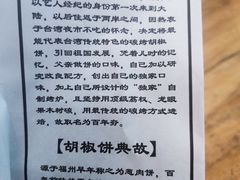 以艺人经纪的身份第一次来到大
陆，以后往返于两岸之间，因热衷
于台湾夜市不吃的怀念，决定将最
能代表台湾传统特色的碳烤胡椒
饼，引回祖国发展，凭着儿时的记
忆，又亲做饼的功夫，自己加以研
究改良配方，创出自己的独家口
味，加上自己所设计的“独家”自
制烤炉，且坚持用顶级荔枝、龙眼
果木树碳，用最传统的碳烤方式进
焙，敬取名为百年夯。
【胡椒饼典故】
源于福州早年称之为葱肉饼，百